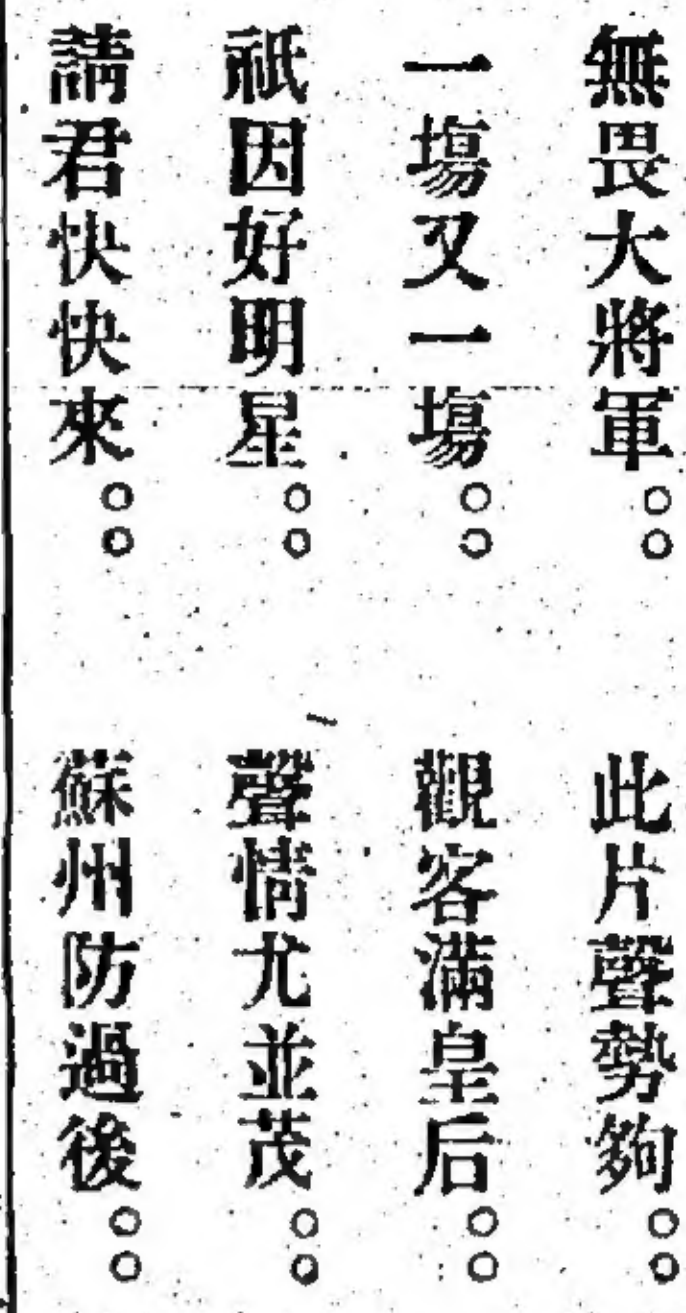 無畏大將軍。。 此片聲勢夠。。
一塲又一塲。。 觀客滿皇后。。
祇因好明星。。 聲情尤並茂。。
請君快快來。。 蘇州防過後。。